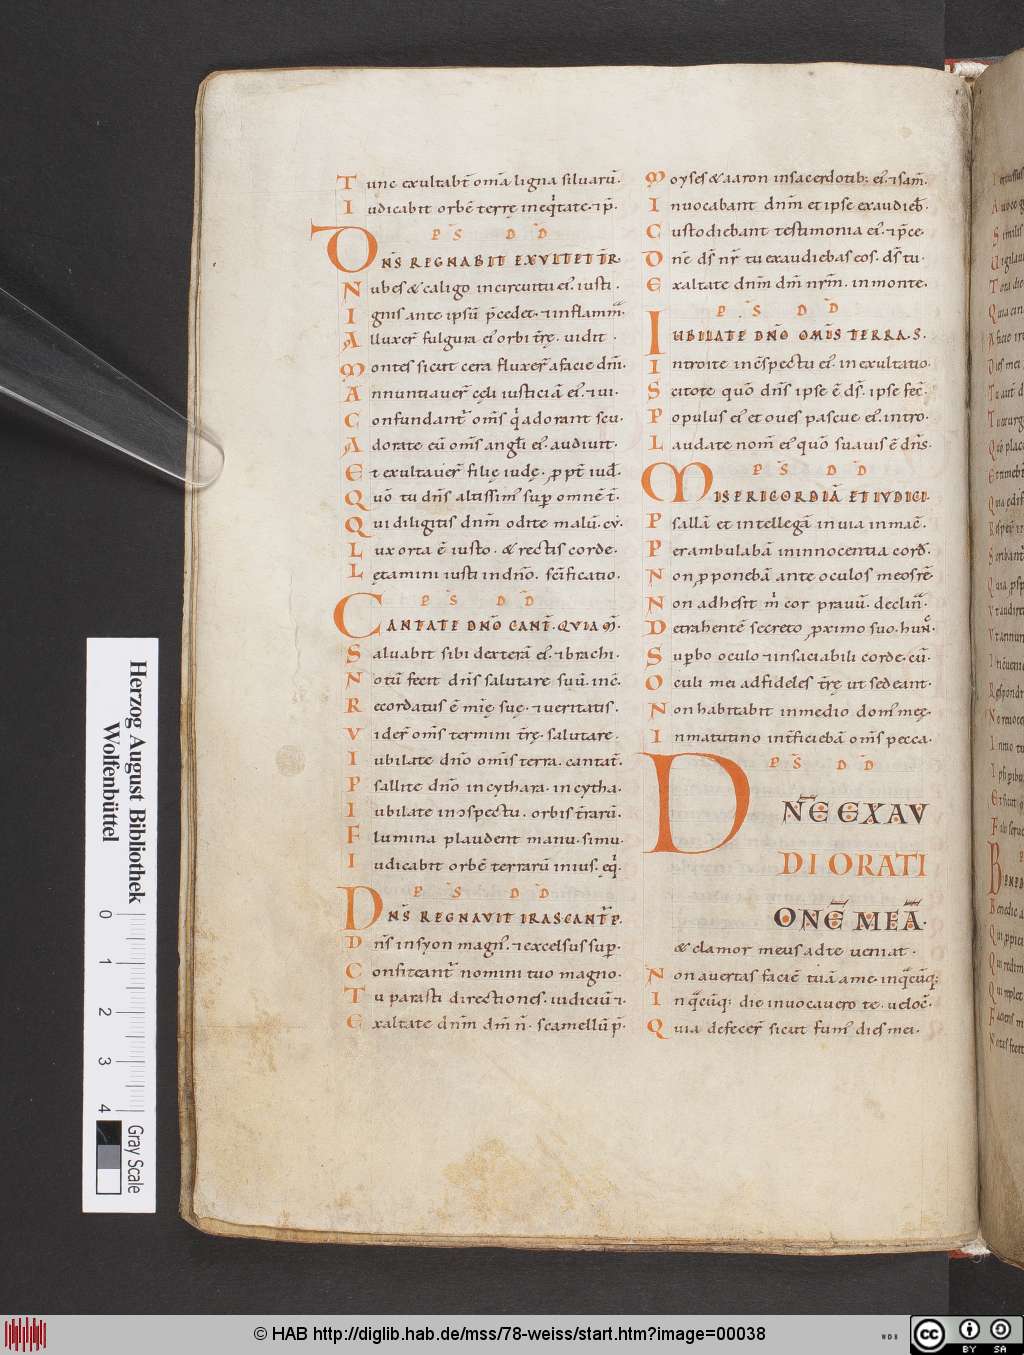 Tunc exultabt̄ om̄a ligna silvarū.
Iudicabit orbē terrę ineq̇tate. ⁊ ıp̄.
PS̄ DD̄
DN̄S REGNABIT EXULTET TR̄
Nubes & caligo incircuitu ei'. iusti.
Ignis ante ipsū p̄cedet. ⁊ inflamm̄.
Alluxer̄ fulgura ei' orbi tr̄ę. vidit.
Montes sicut cera fluxer̄ afacie dn̄i.
Annuntiaver̄ cęli iusticiā ei'. ⁊ vi.
Confundant̄ om̄s q̇ adorant scu.
Adorate eū om̄s angl̄i ei'. audivit.
Et exultaver̄ filię iudę. ꝓpt̄ iud̄.
Quō tu dn̄s altissim' sup̄ omnē t̄.
Qui diligitis dn̄m odite malū. cv̄.
Lux orta ē iusto. & rectis corde.
Lętamini iusti indn̄o. sc̄ificatio.
PS̄ DD̄
CANTATE DN̄O CANT̄. QVIA M̄.
Salvabit sibi dexterā ei'. ⁊ brachi.
Notū fecit dn̄s salutare suū. inc̄.
Recordatus ē mīę suę. ⁊ veritatis.
Vider̄ om̄s termini tr̄ę. salutare.
Iubilate dn̄o om̄is terra. cantat̄.
Psallite dn̄o incythara. incytha.
Iubilate inↄspectu. orbis tr̄arū.
Flumina plaudent manu. simu.
Iudicabit orbē terrarū inius. eq̇.
PS̄ DD̄
DN̄S REGNAVIT IRASCANT̄ P.
Dn̄s insyon magn'. ⁊ excelsus sup̄.
Confiteant̄ nomini tuo magno.
Tu parasti directiones. iudiciū ⁊.
Exaltate dn̄m dm̄ n̄. scamellū p̄.
Moyses & aaron insacerdotib: ei'. ⁊ sam̄.
Invocabant dn̄m et ipse exaudieb̄.
Custodiebant testimonia ei'. ⁊ p̄ce.
Dn̄e ds̄ nr̄ tu exaudiebas eos. ds̄ tu.
Exaltate dn̄m dm̄ nr̄m. inmonte.
PS̄ DD̄
IUBILATE DN̄O OM̄IS TERRA. S.
Introite incs̄pectu ei'. in exultatio.
Scitote quō dn̄s ipse ē ds̄. ipse fec̄.
Populus ei' et oves pascue ei'. intro.
Laudate nom̄ ei' quō suavis ē dn̄s.
PS̄ DD̄
MISERICORDIĀ ET IUDICI.
Psallā et intellegā invia inmac̄.
Perambulabā ininnocentia cord̄.
Non ꝓponebā ante oculos meos rē.
Non adhesit m̄ cor pravū. declin̄.
Detrahentē secreto ꝓximo suo. hūn̄.
Sup̄bo oculo ⁊ insaciabili corde. cū.
Oculi mei adfideles tr̄ę ut sedeant.
Non habitabit inmedio dom' meę.
Inmatutino int̄ficiebā om̄s pecca.
PS̄ DD̄
DN̄E EXAU
DI ORATI
ONĒ MEĀ.
& clamor meus adte veniat.
Non avertas faciē tuā ame. inq̄cūq:
Inq̄cūq: die invocavero te. veloc̄.
Quia defecer̄ sicut fum' dies mei.
Herzog August Bibliothek
Wolfenbüttel
0 1 2 3 4
Gray Scale
© HAB http://diglib.hab.de/mss/78-weiss/start.htm?image=00038
WDB
CC BY SA